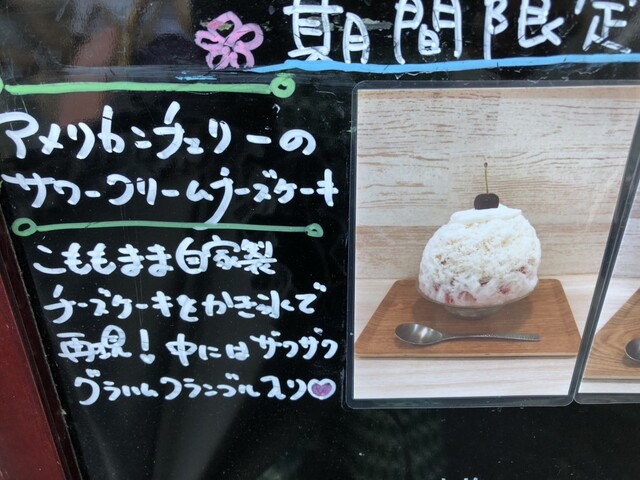 期間限定
アメリカンチェリーの
サワークリームチーズケーキ
こももまま自家製
チーズケーキをかき氷で
再現！中にはザクザク
グラハムクランブル入り